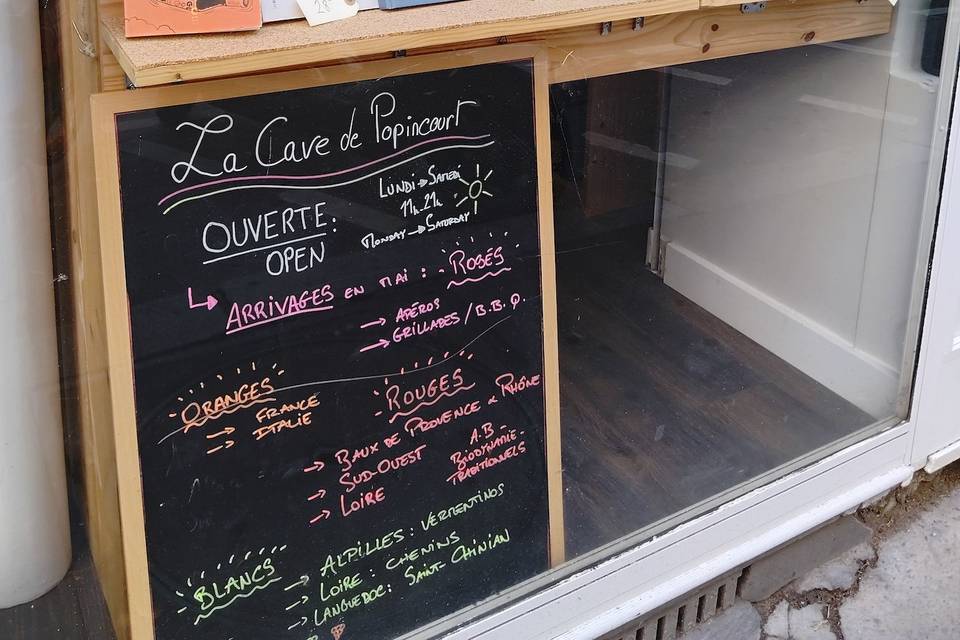 La Cave de Popincourt
OUVERTE:
OPEN
LUNDI → SAMEDI
11h-21h
MONDAY → SATURDAY
ARRIVAGES EN MAI : - ROSÉS
→ APÉROS
→ GRILLADES / B.B.Q.
ORANGES
→ FRANCE
→ ITALIE
ROUGES
→ BAUX DE PROVENCE & RHÔNE
→ SUD-OUEST
→ LOIRE
A.B -
BIODYNAMIE -
TRADITIONNELS
BLANCS
→ ALPILLES : VERMENTINOS
→ LOIRE : CHENINS
→ LANGUEDOC : SAINT-CHINIAN